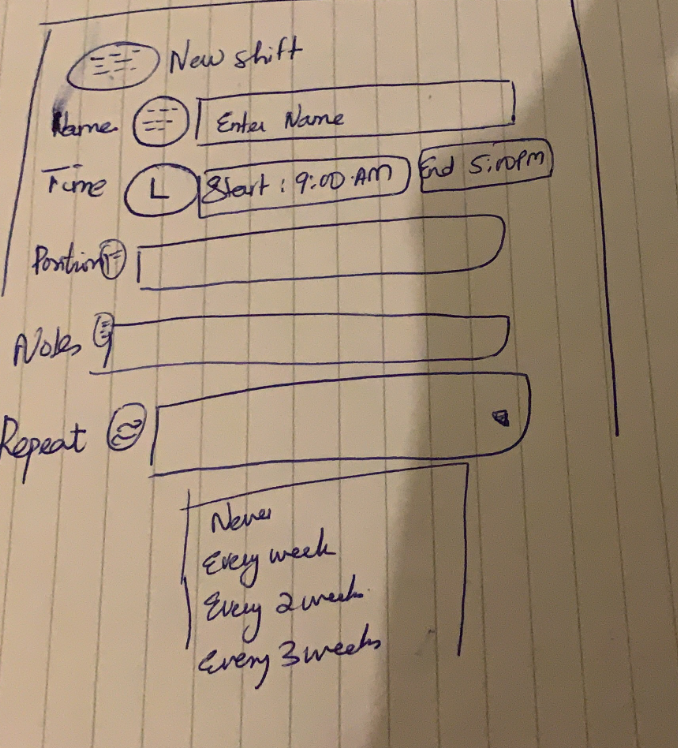 New shift
Name Enter Name
Time L Start : 9:00 AM End 5:00PM
Position
Notes
Repeat
Never
Every week
Every 2 week
Every 3 weeks